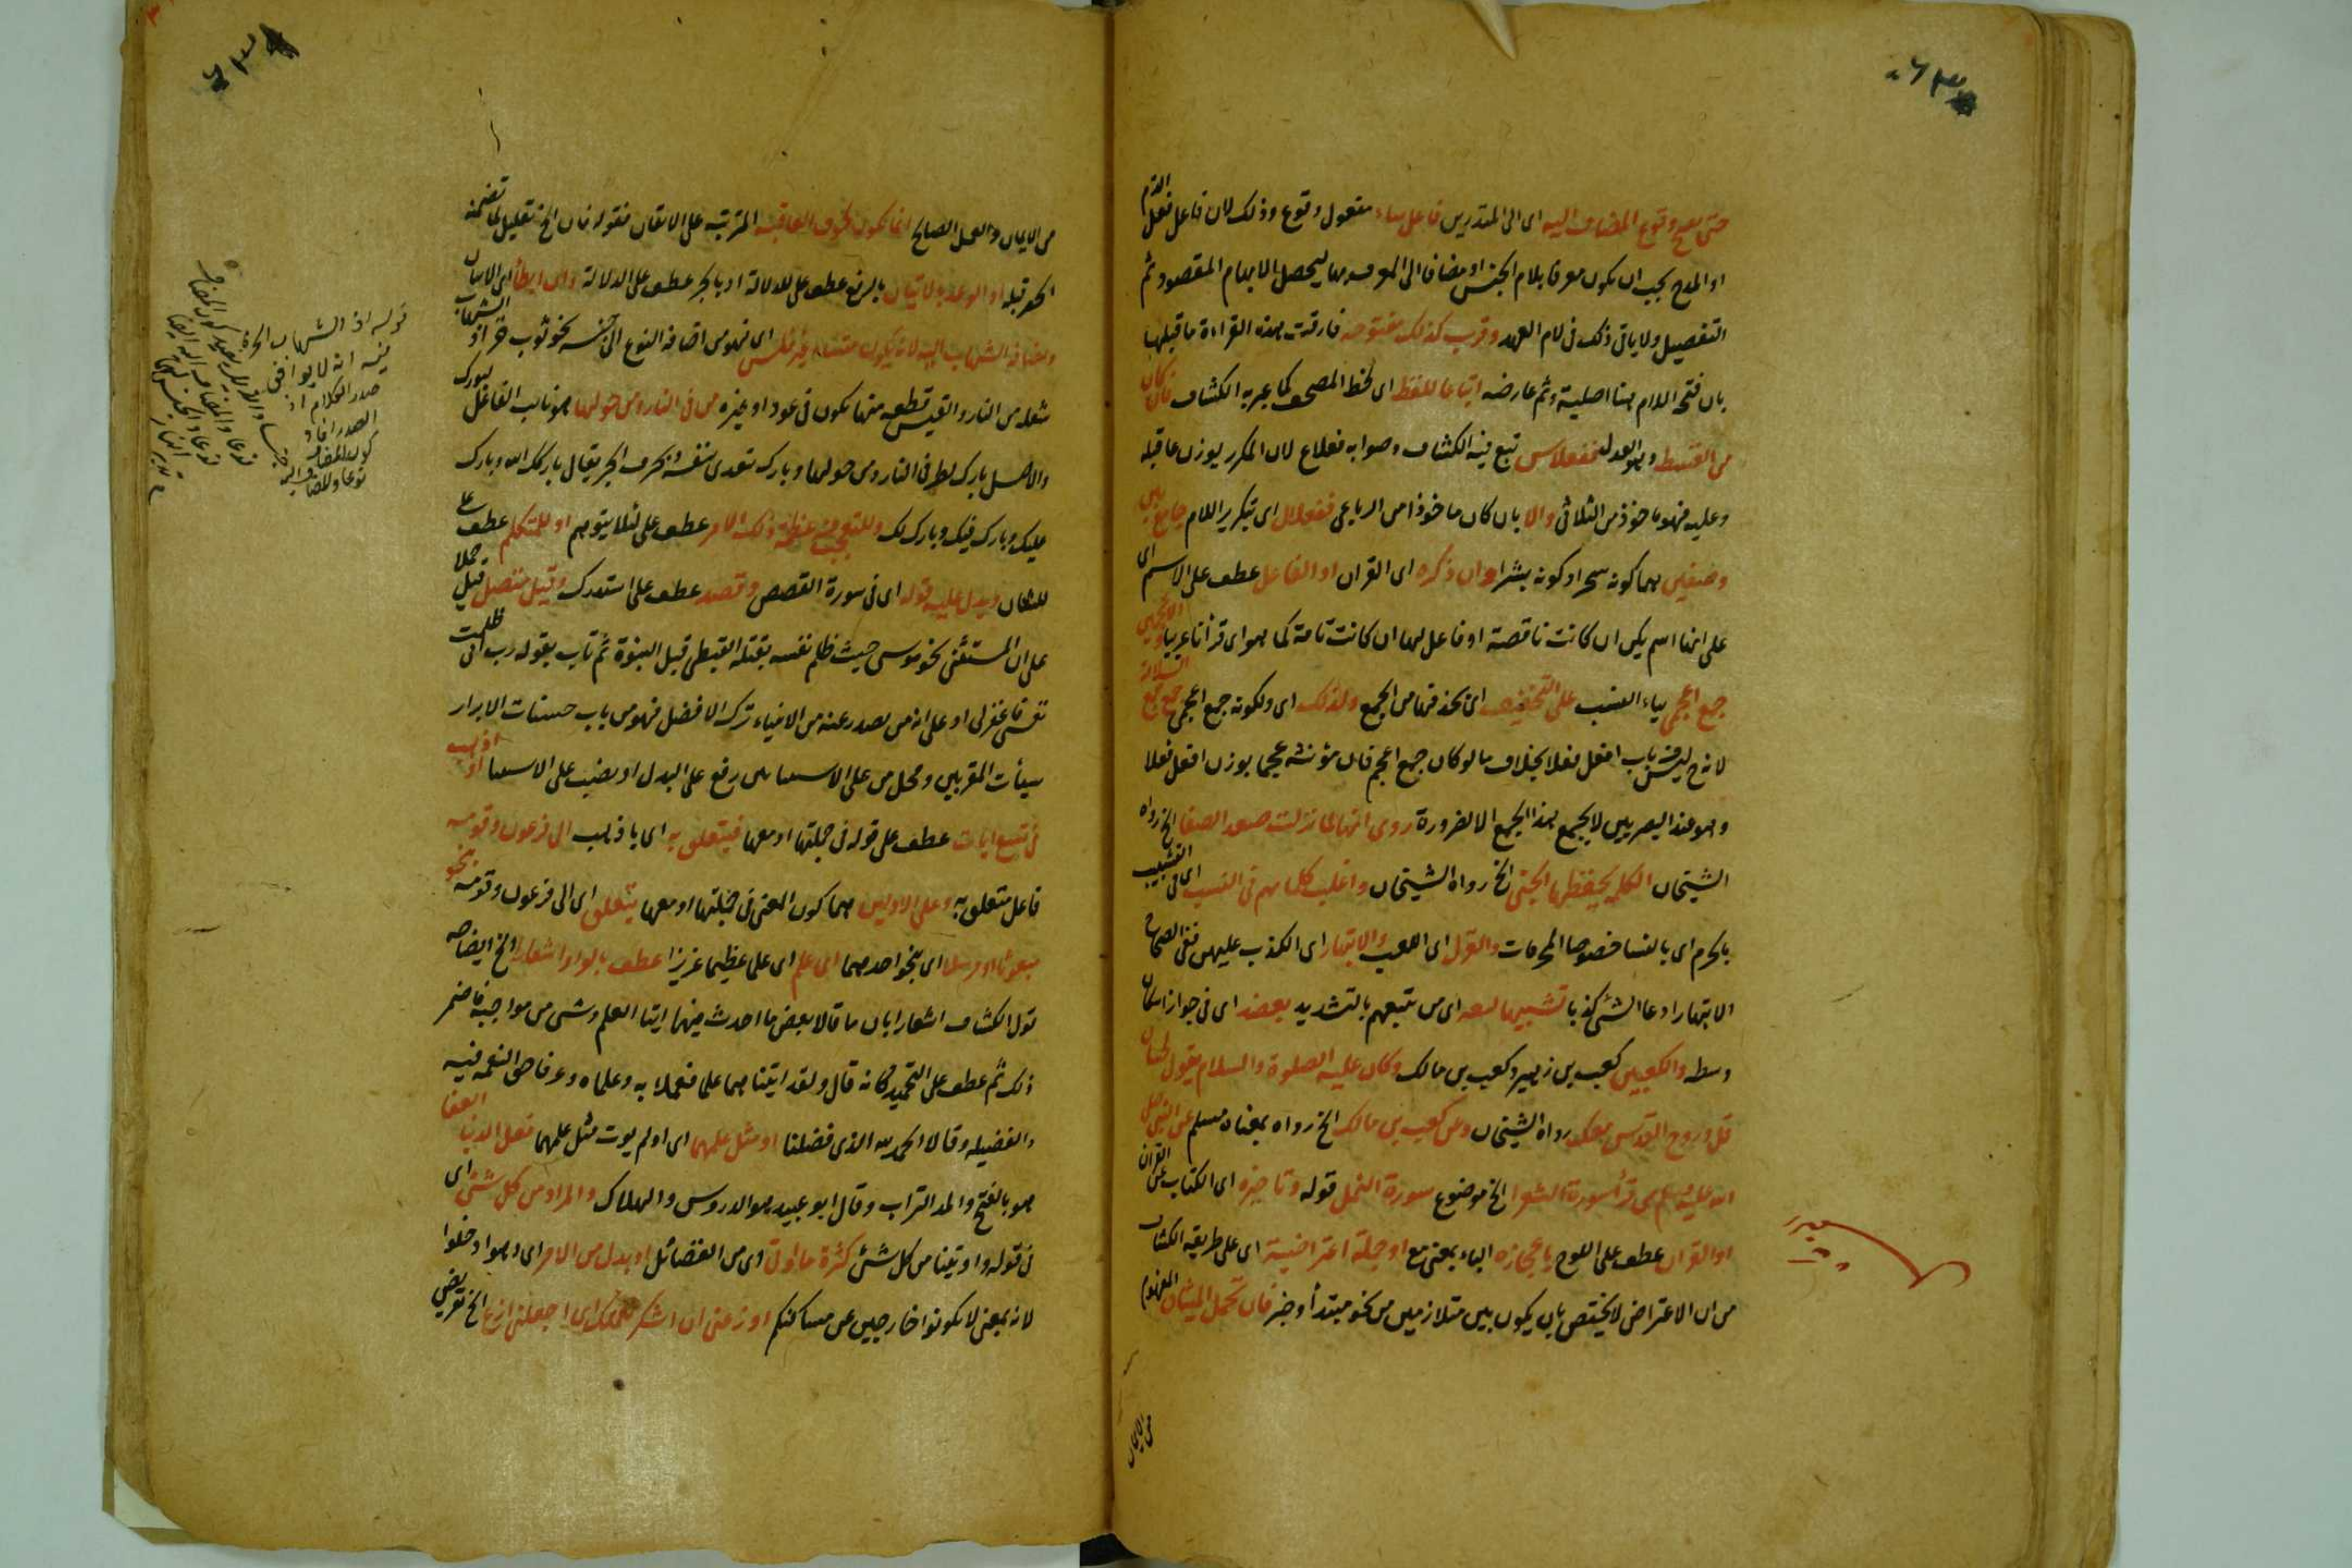 حتى يصح وقوع المضاف اليه اى الى المتقدمين فاعل ساء مفعول وقوع وذلك لان فاعل فعل الذم
او المدح يجب ان يكون معرفا بلام الجنس او مضافا الى المعرف بها ليحصل الابهام المقصود ثم
التفصيل ولا ياتى ذلك فى لام العهد وقرئ كذلك مفتوحه فارقت بهذه القراءة ما قبلها
بان فتح اللام هنا اصلية وثم عارضه اتباعا للفظ اى لخط المصحف كما عبر به الكشاف فان كان
من القسط وهو العدل ففعلاس تبع فيه الكشاف وصوابه فعلاع لان المكرر يوزن بما قبله
وعليه فهو ماخوذ من الثلاثى والا بان كان ماخوذا من الرباعى ففعلال اى بتكرير اللام جامع بين
وصفين هما كونه مسحرا وكونه بشرا وان ذكره اى القران او الفاعل عطف على الاسم اى
على انها اسم يكن ان كانت ناقصة او فاعل لها ان كانت تامة كما هو اى قرأنا عربيا الاعجميين
جمع اعجمى بياء النسب على التخفيف اى بحذفها من الجمع ولذلك اى ولكونه جمع اعجمى جمع جمع السلامة
لانه ح ليس من باب افعل فعلا بخلاف ما لو كان جمع اعجم فان مؤنثه عجما بوزن افعل فعلا
وهو عند البصريين لا يجمع هذا الجمع الا لضرورة روى انها لما نزلت صعد الصفا الخ رواه
الشيخان الكلمة يحفظها الجنى الخ رواه الشيخان واغلب كلماتهم فى النسب اى فى التشبيب
بالحرم اى بالنسا خصوصا المحرمات والغزل اى اللعب والابتهار اى الكذب عليهن ففى الصحاح
الابتهار ادعا الشئ كذبا تشبيها لبعه اى من يتبعهم بالتشديد بعضد اى فى جواز اسكان
وسطه والكعبين كعب بن زهير وكعب بن مالك وكان عليه الصلوة والسلام يقول لحسان
قل وروح القدس معك رواه الشيخان وعن كعب بن مالك الخ رواه بمعناه مسلم عن النبى صلى
الله عليه وسلم من قرأ سورة الشعرا الخ موضوع سورة النمل قوله وتاخيره اى الكتاب عن القران
او القران عطف على اللوح باعجازه الباء بمعنى مع او جملة اعتراضية اى على طريقة الكشاف
من ان الاعتراض لا يختص بان يكون بين متلازمين من نحو مبتدأ وخبر فان تحمل المشاق المفهوم
من الايمان
من الايمان والعمل الصالح انما يكون لخوف العاقبة المترتبه على الايقان فقوله فان الخ تعليل لما تضمنه
الحصر قبله او الوعد بالاتيان بالرفع عطف على للدلالة او بالجر عطف على الدلالة وان ابطأ اى الاتيان
واضافة الشهاب اليه لانه يكون قبسا وغير قبس اى فهو من اضافة النوع الى جنسه نحو ثوب خز اذ الشهاب
شعله من النار والقبس قطعه منها تكون فى عود او غيره من فى النار ومن حولها هو نائب الفاعل لبورك
والاصل بارك الله من فى النار ومن حولها وبارك يتعدى بنفسه وبحرف الجر يقال باركك الله وبارك
عليك وبارك فيك وبارك لك وللتعجيب من عظمة ذلك الامر عطف على لئلا يتوهم او للمتكلم عطف على
للمكان ويدل عليه قوله اى فى سورة القصص وقصد عطف على استدرك وقيل متصل قيل حملا
على ان المستثنى نحو موسى حيث ظلم نفسه بقتله القبطى قبل النبوة ثم تاب بقوله رب انى ظلمت
نفسى فاغفر لى او على انه من يصدر عنه من الانبياء ترك الافضل فهو من باب حسنات الابرار
سيأت المقربين ومحل من على الاستثناء رفع على البدل او نصب على الاستثنا او اذهب
فى تسع ايات عطف على قوله فى جملتها او معها فيتعلق به اى باذهب الى فرعون وقومه
فاعل متعلق به وعلى الاولين هما كون المعنى فى جملتها او معها يتعلق اى الى فرعون وقومه بنحو
مبعوثا او مرسلا اى بنحو احدهما اى علم اى علما عظيما عزيزا عطف بالواو اشعارا الخ ايضاحه
قول الكشاف اشعارا بان ما قالا بعض ما احدث فيهما ايتا العلم وشى من مواجبه فاضمر
ذلك ثم عطف على التحميد كانه قال ولقد اتيناهما علما فعملا به وعلماه وعرفا حق النعمه فيه
والفضيله وقالا الحمد لله الذى فضلنا او مثل علمهما اى او لم يوت مثل علمهما فعلى الدنيا العفا
هو بالفتح والمد التراب وقال ابو عبيد هو الدروس والهلاك والمراد من كل شئ اى
فى قوله واوتينا من كل شئ كثرة ما اوتى اى من الفضائل او بدل من الامر اى وهو ادخلوا
لانه بمعنى لا تكونوا خارجين عن مساكنكم اوزعنى ان اشكر نعمتك اى اجعلنى ازع الخ تعريض
قوله اذ الشهاب الخ
فيه انه لا يوافق
صدر الكلام اذ
الصدر افاد
كون المضاف
نوعا والمضاف اليه